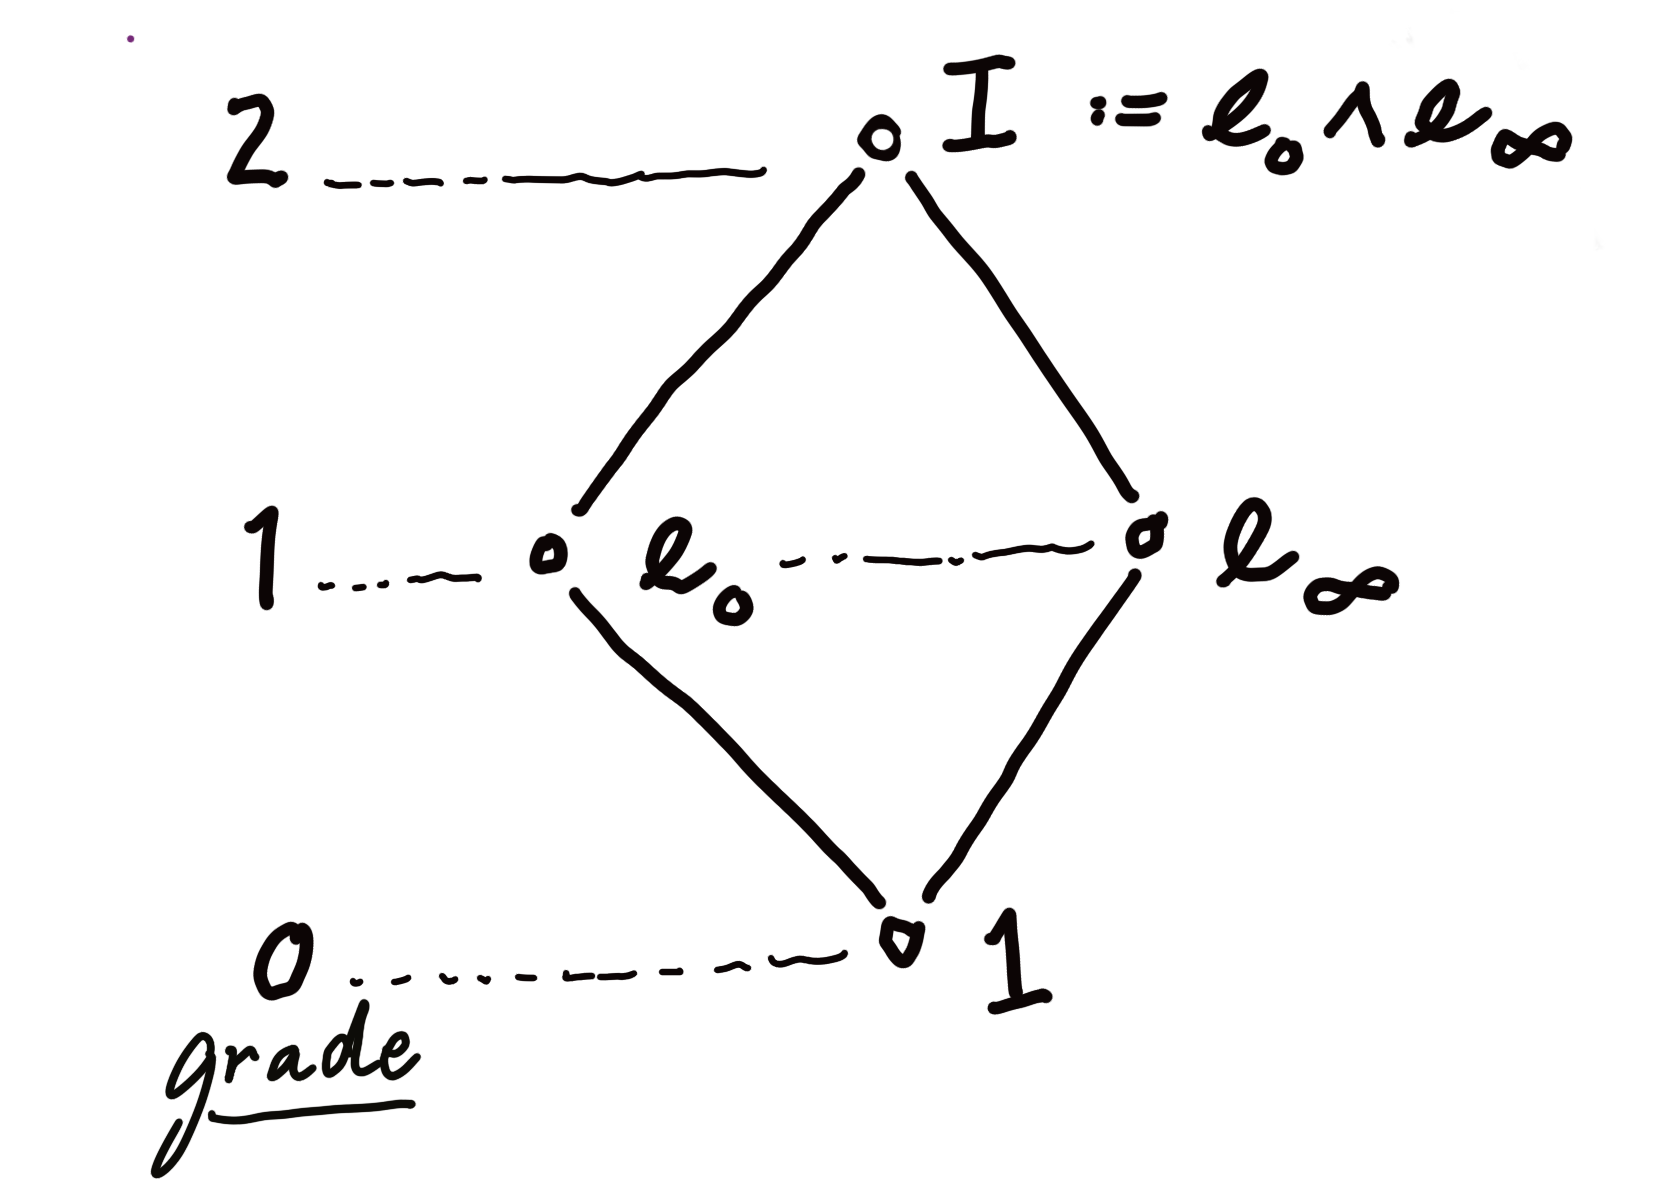 2 I := e₀ ∧ e∞
1 e₀ e∞
0 1
grade